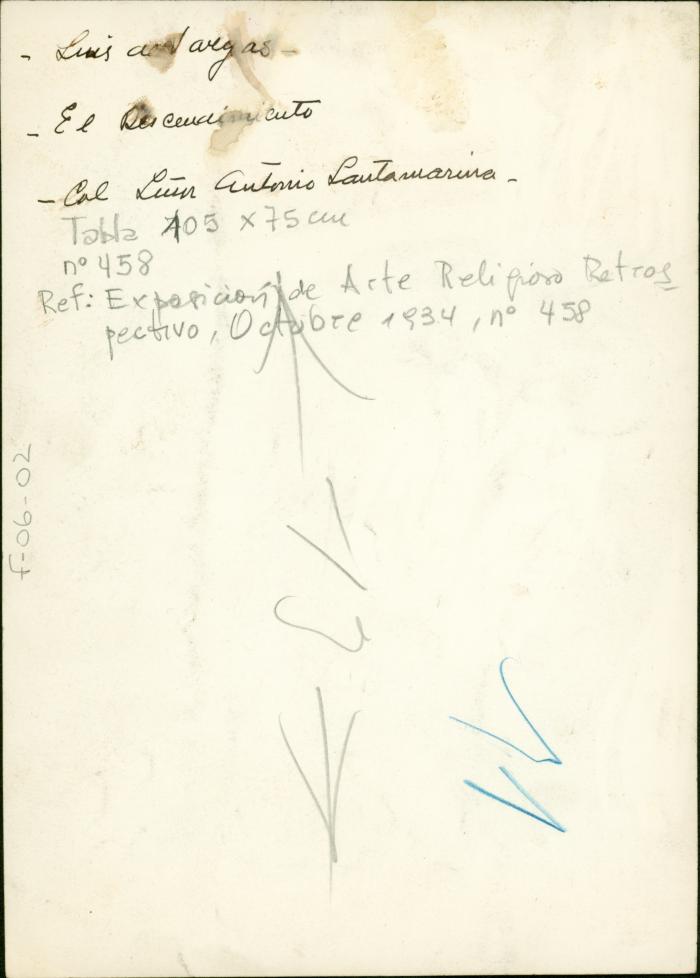 - Luis de Vargas -
- El Descendimiento
- Col Señor Antonio Santamarina -
Tabla 105 x 75 cm
nº 458
Ref: Exposición de Arte Religioso Retros
pectivo, Octubre 1934, nº 458
F-06-02